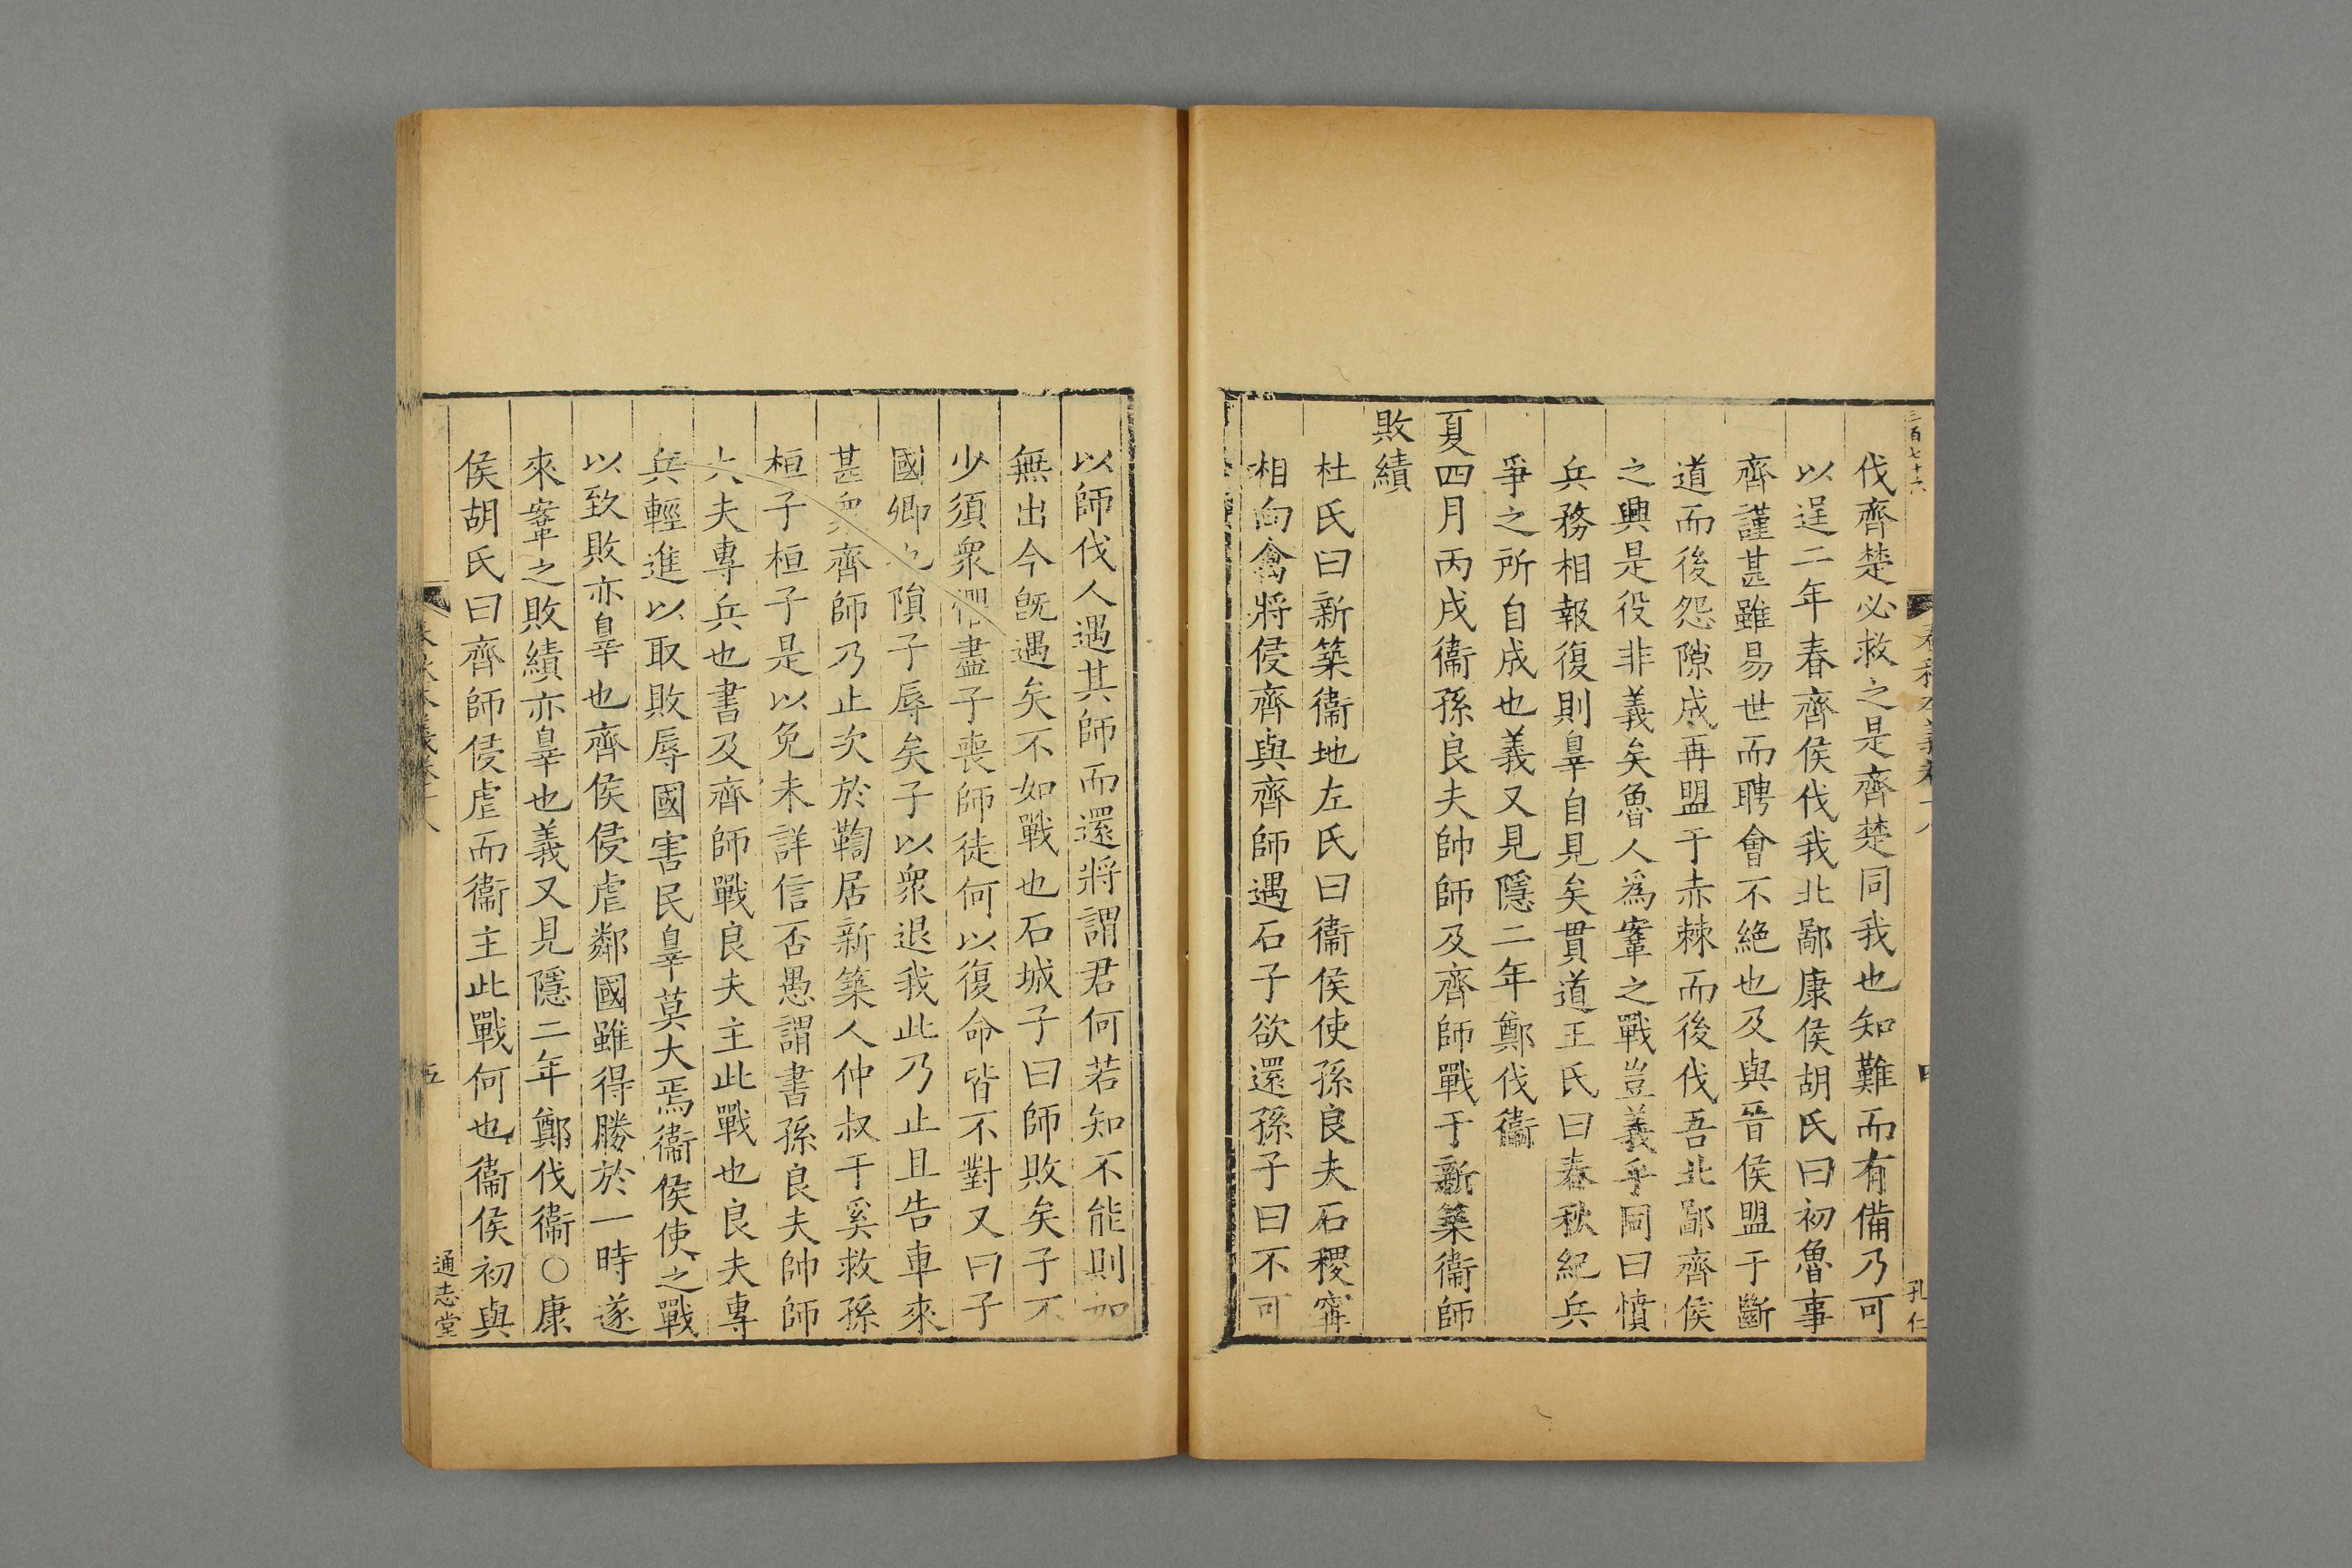 三百七十六
伐齊楚必救之是齊楚同我也知難而有備乃可
以逞二年春齊侯伐我北鄙康侯胡氏曰初魯事
齊謹甚雖易世而聘會不絕也及與晉侯盟于斷
道而後怨隙成再盟于赤棘而後伐吾北鄙齊侯
之興是役非義矣魯人爲鞌之戰豈義乎同曰憤
兵務相報復則辠自見矣貫道王氏曰春秋紀兵
爭之所自成也義又見隱二年鄭伐衞
夏四月丙戌衞孫良夫帥師及齊師戰于新築衞師
敗績
杜氏曰新築衞地左氏曰衞侯使孫良夫石稷甯
相向禽將侵齊與齊師遇石子欲還孫子曰不可
孔仁
以師伐人遇其師而還將謂君何若知不能則如
無出今旣遇矣不如戰也石城子曰師敗矣子不
少須衆懼盡子喪師徒何以復命皆不對又曰子
國卿也隕子辱矣子以衆退我此乃止且告車來
甚衆齊師乃止次於鞫居新築人仲叔于奚救孫
桓子桓子是以免未詳信否愚謂書孫良夫帥師
大夫專兵也書及齊師戰良夫主此戰也良夫專
兵輕進以取敗辱國害民辠莫大焉衞侯使之戰
以致敗亦辠也齊侯侵虐鄰國雖得勝於一時遂
來鞌之敗績亦辠也義又見隱二年鄭伐衞○康
侯胡氏曰齊師侵虐而衞主此戰何也衞侯初與
五
通志堂